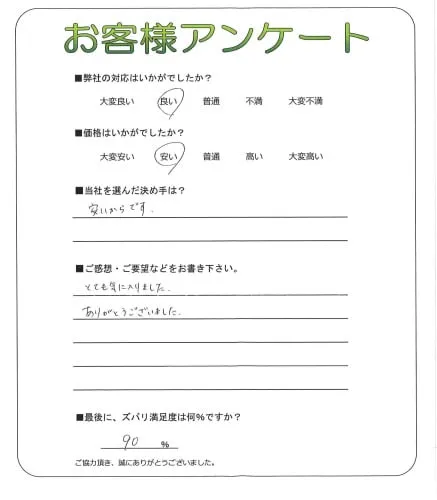 お客様アンケート
■弊社の対応はいかがでしたか？
大変良い 良い 普通 不満 大変不満
■価格はいかがでしたか？
大変安い 安い 普通 高い 大変高い
■当社を選んだ決め手は？
安いからです.
■ご感想・ご要望などをお書き下さい。
とても気に入りました.
ありがとうございました.
■最後に、ズバリ満足度は何%ですか？
90 %
ご協力頂き、誠にありがとうございました。